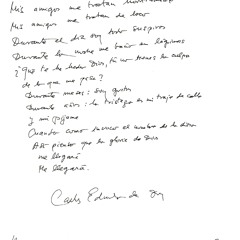 Mis amigos me tratan
Mis amigos me tratan de loco
Durante el día soy todo suspiros
Durante la noche me baño en lágrimas
¿Que te he hecho Dios, tú no tienes la culpa
de lo que me pasa?
Durante meses: soy
Durante años: la tristeza es mi traje de calle
y mi pijama
Cuando
Así pienso que la gloria de Dios
me llegará
Me llegará.
Carlos Edmundo de Ory